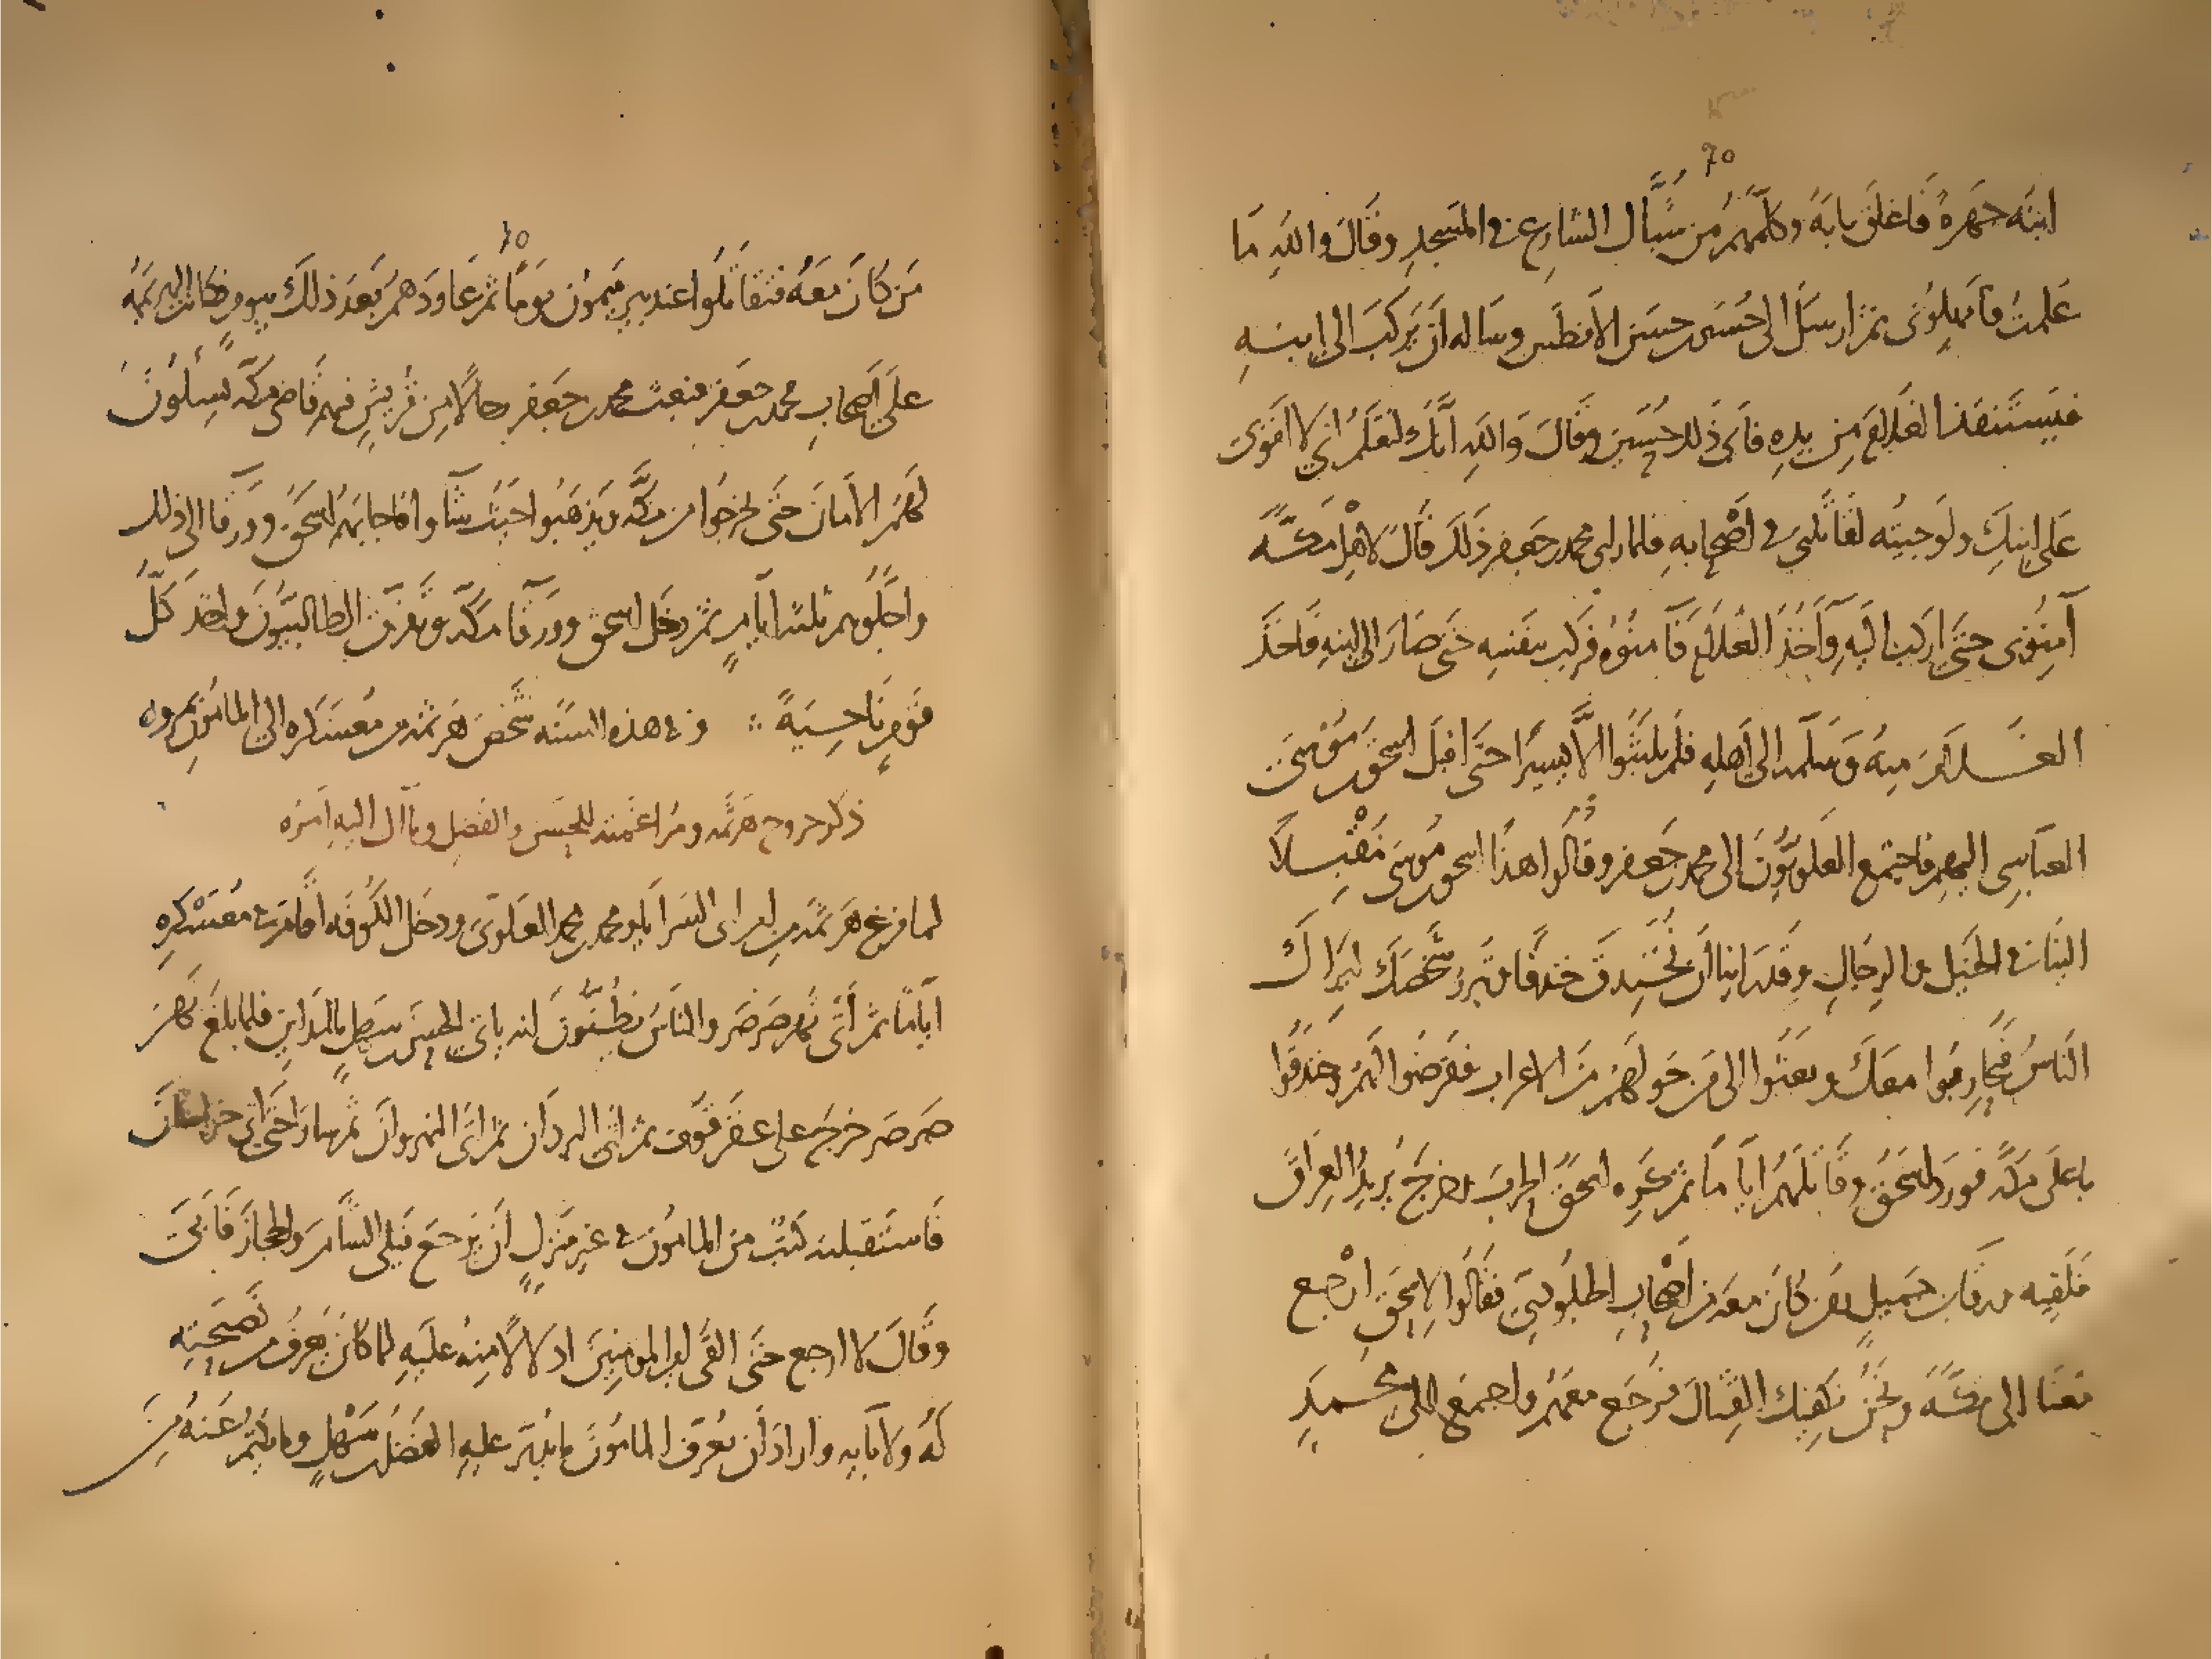 ٦٥
ابنه جهرة فاغلق بابه وكلمهم من شباك الشارع في المسجد وقال والله ما
علمت فامهلوني ثم ارسل الى حسين بن حسن الافطس وساله ان يركب الى ابنه
فيستنقذ الغلام من يده فابى ذلك حسين وقال والله انك لتعلم اني لا اقوى
على ابنك ولو جيته لقاتلني في اصحابه فلما راى محمد بن جعفر ذلك قال لاهل مكة
آمنوني حتى اركب اليه وآخذ الغلام فآمنوه فركب بنفسه حتى صار الى ابنه فاخذ
الغلام منه وسلمه الى اهله فلم يلبثوا الا يسيرا حتى اقبل اسحق بن موسى
العباسي اليهم فاجتمع العلويون الى محمد بن جعفر وقالوا هذا اسحق بن موسى مقبلا
الينا في الخيل والرجال وقد راينا ان نخندق خندقا وتبرز شخصك ليراك
الناس فيحاربوا معك وبعثوا الى من حولهم من الاعراب ففرضوا لهم وخندقوا
باعلى مكة فورد اسحق وقاتلهم اياما ثم كره اسحق الحرب وخرج يريد العراق
فلقيه ورقا بن جميل ومن كان معه من اصحاب الجلودي فقالوا لاسحق ارجع
معنا الى مكة ونحن نكفيك القتال فرجع معهم واجتمع الى محمد
من كان معه فتقاتلوا عند بير ميمون يوما ثم عاودهم بعد ذلك بيوم فكانت الهزيمة
على اصحاب محمد بن جعفر فبعث محمد بن جعفر رجالا من قريش فيهم قاضي مكة يسئلون
لهم الامان حتى يخرجوا من مكة ويذهبوا حيث شاوا فاجابهم اسحق وورقا الى ذلك
واجلوهم ثلثة ايام ثم دخل اسحق وورقا مكة وتفرق الطالبيون واخذ كل
قوم ناحية وفي هذه السنة شخص هرثمة من معسكره الى المامون بمرو
ذكر خروج هرثمة ومراغمته للحسن والفضل وما آل اليه امره
لما فرغ هرثمة من امر ابي السرايا ومحمد بن محمد العلوي ودخل الكوفة اقام في معسكره
اياما ثم اتى نهر صرصر والناس يظنون انه ياتي الحسن بن سهل بالمداين فلما بلغ نهر
صرصر خرج على عقرقوف ثم اتى البردان ثم اتى النهروان ثم سار حتى اتى خراسان
فاستقبلته كتب من المامون في غير منزل ان يرجع فيلي الشام والحجاز فابى
وقال لا ارجع حتى القى امير المومنين ادلالا منه عليه لما كان يعرف من نصيحته
له ولآبايه واراد ان يعرف المامون ما يدبر عليه الفضل بن سهل وما يكتم عنه من